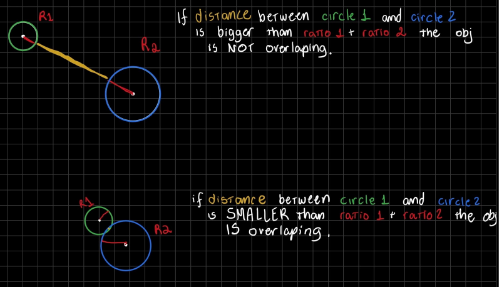 R1
R2
If distance between circle 1 and circle 2
is bigger than ratio 1 + ratio 2 the obj
is NOT overlaping.
R1
R2
if distance between circle 1 and circle 2
is SMALLER than ratio 1 + ratio 2 the obj
IS overlaping.